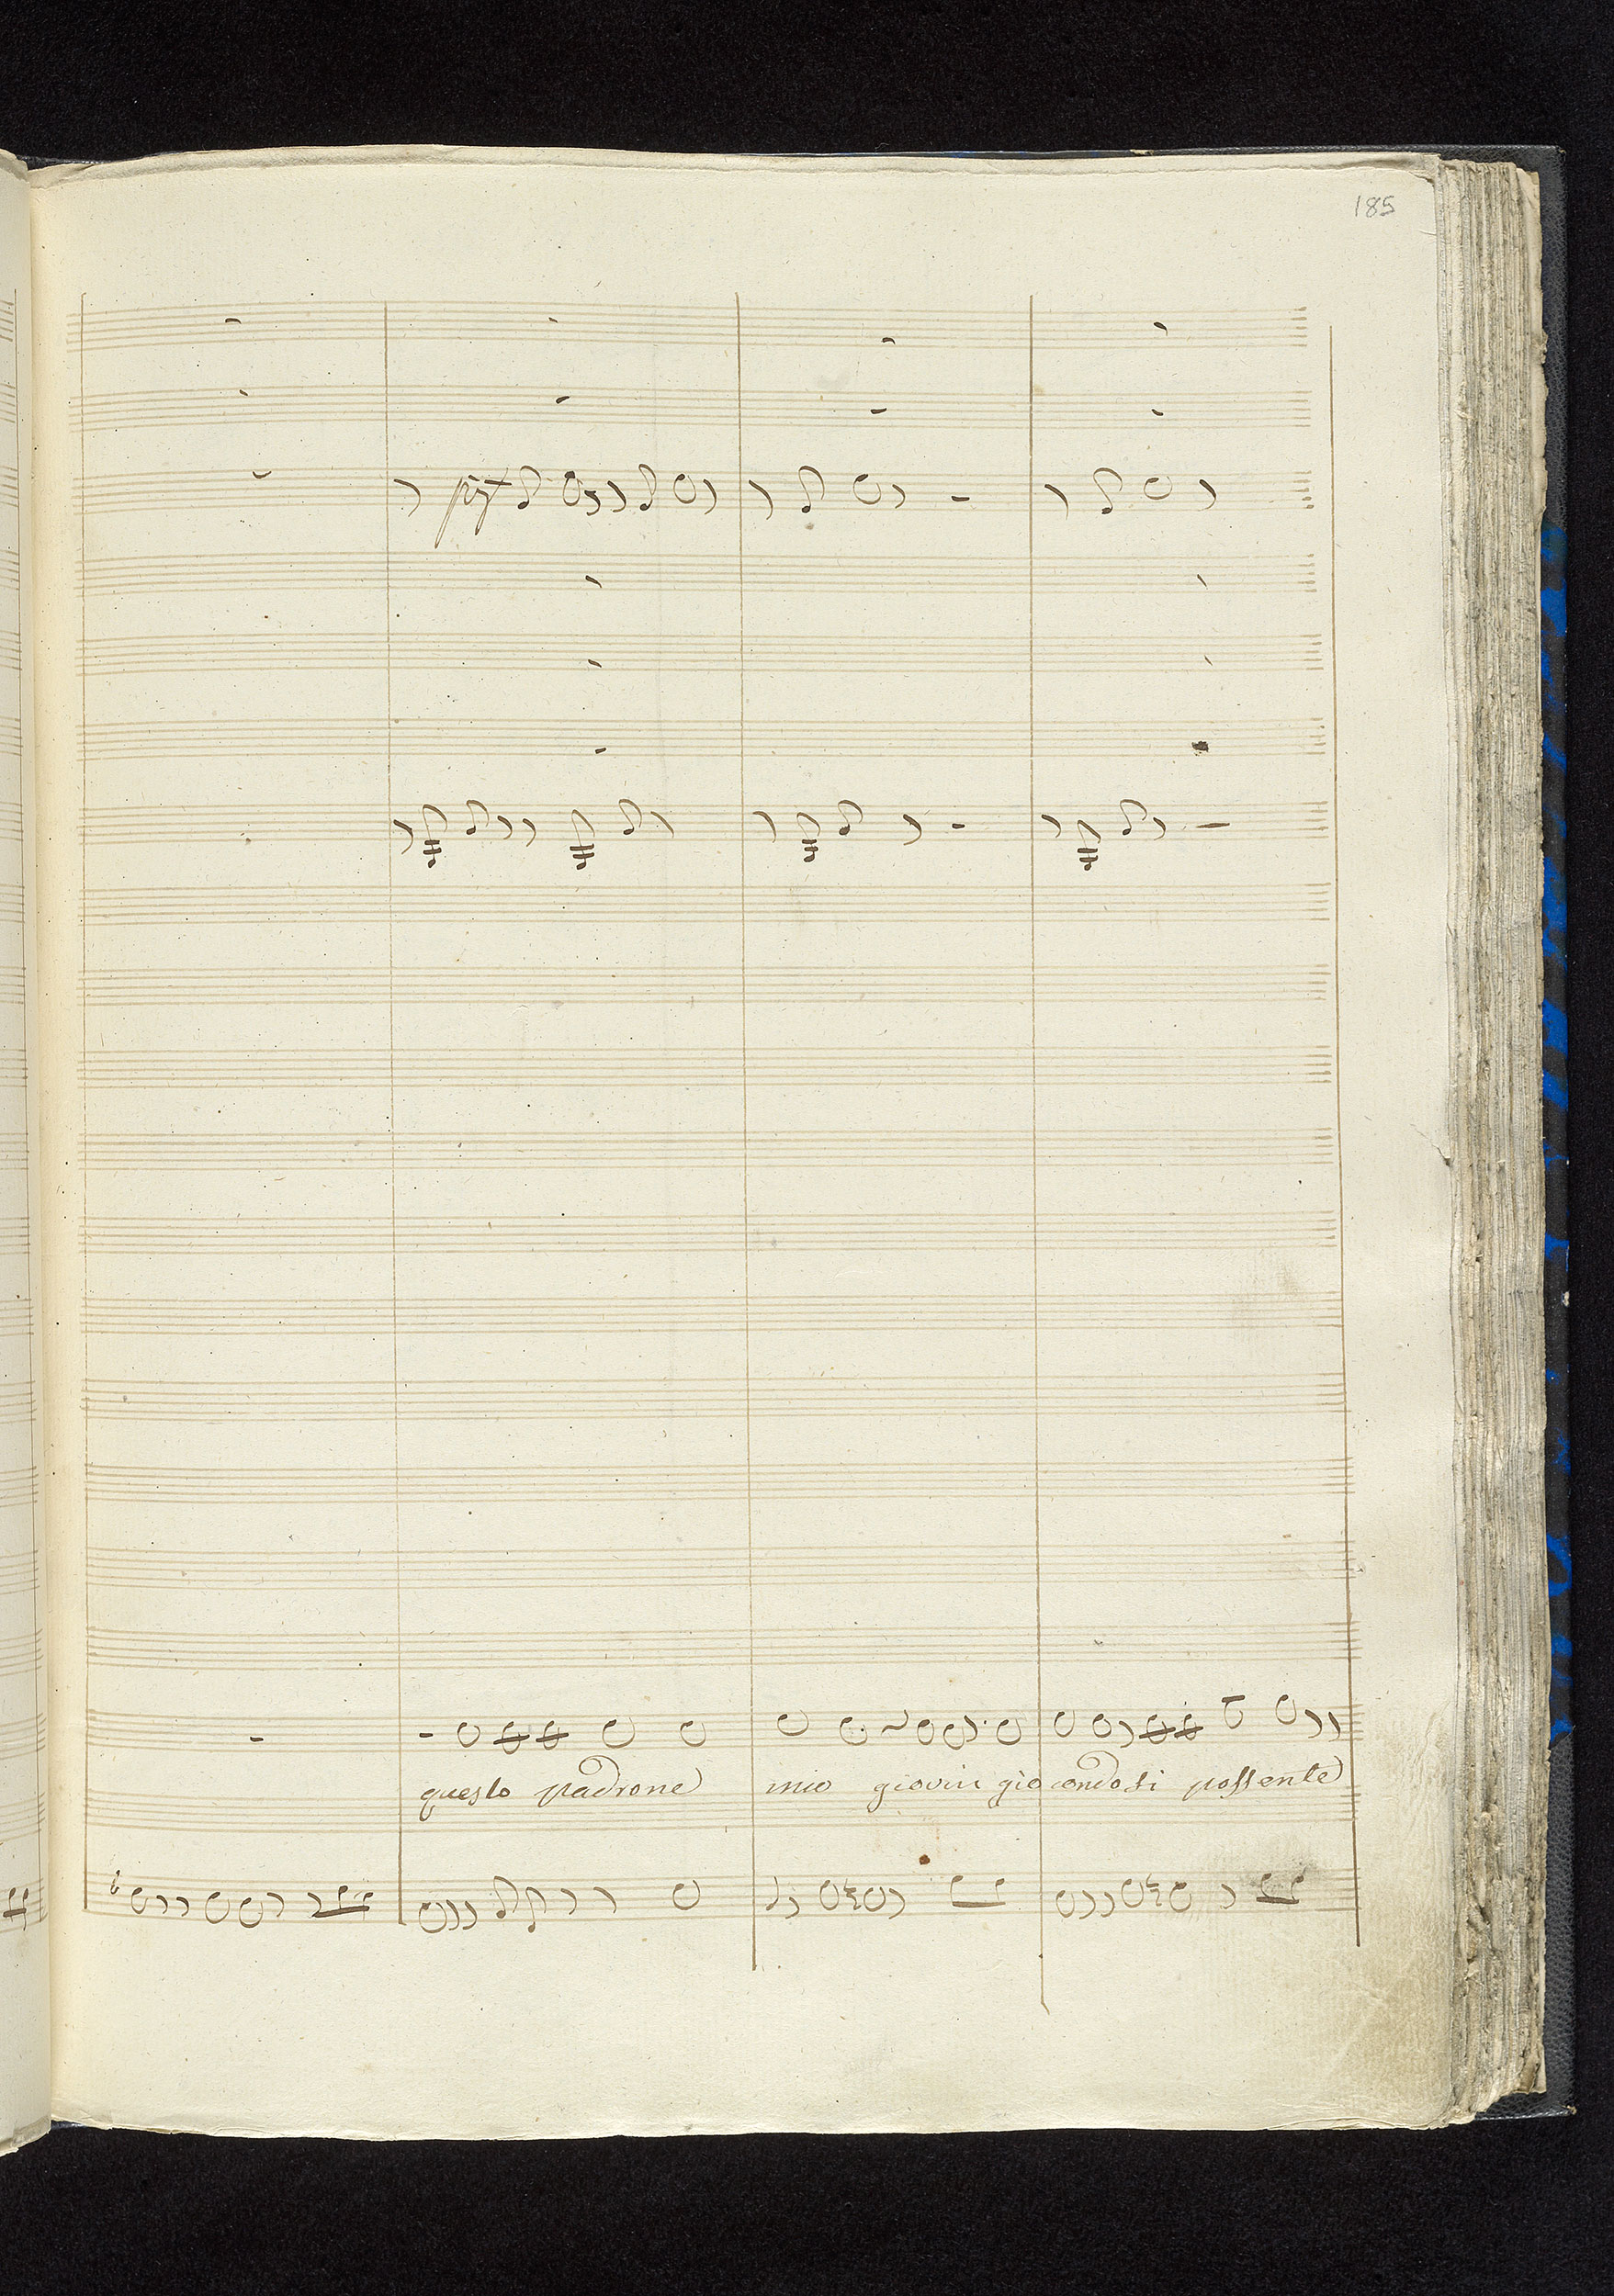 185
questo padrone mio giovin giocondo si possente